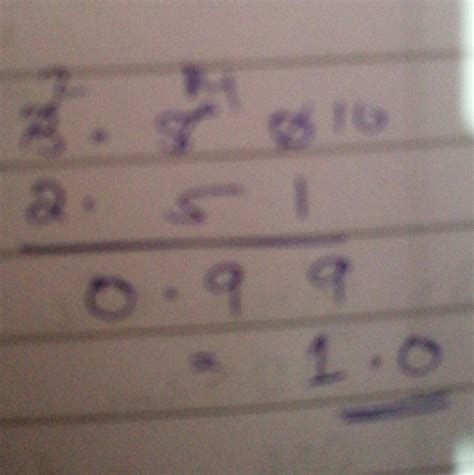 2 14
3 . 5 0 10
2 . 5 1
0 . 9 9
= 1 . 0